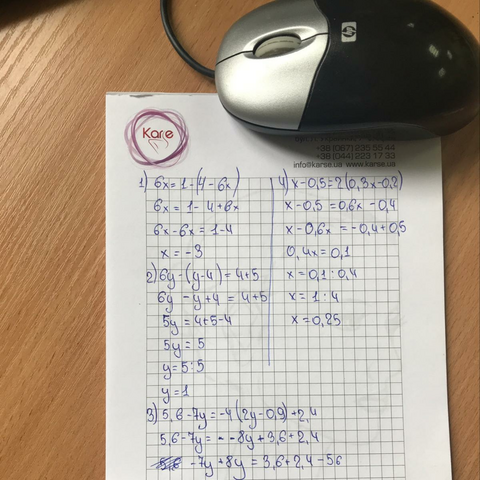 Karse
+38 (067) 235 55 44
+38 (044) 223 17 33
info@karse.ua www.karse.ua
1) 6x = 1-(4-6x)
6x = 1-4+6x
6x-6x = 1-4
x = -3
2) 6y-(y-4) = 4+5
6y-y+4 = 4+5
5y = 4+5-4
5y = 5
y = 5:5
y = 1
3) 5,6-7y = -4(2y-0,9)+2,4
5,6-7y = - -8y+3,6+2,4
-7y+8y = 3,6+2,4-56
4) x-0,5 = 2(0,3x-0,2)
x-0,5 = 0,6x-0,4
x-0,6x = -0,4+0,5
0,4x = 0,1
x = 0,1:0,4
x = 1:4
x = 0,25
hp